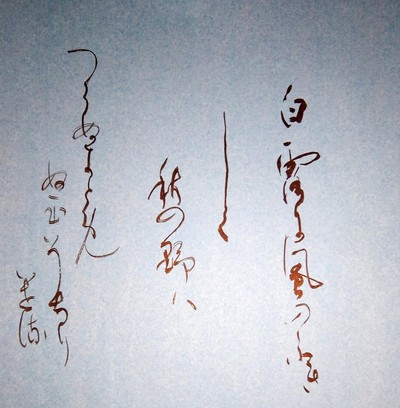 白露に風のふき
しく
秋の野ハ
つらぬきとめ
ぬ玉そちり
ける